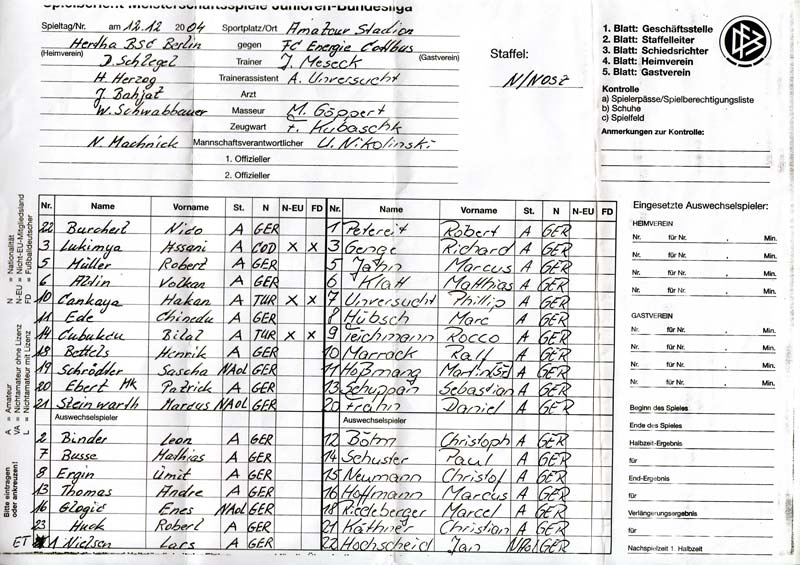 Spielbericht Meisterschaftsspiele Junioren-Bundesliga
Spieltag/Nr. am 12.12 2004 Sportplatz/Ort Amateur Stadion
Hertha BSC Berlin gegen FC Energie Cottbus
(Heimverein) (Gastverein)
D. Schlegel Trainer J. Meseck
H. Herzog Trainerassistent A. Unversucht
J. Bahjat Arzt
W. Schwabbauer Masseur M. Göppert
Zeugwart F. Kubaschk
N. Machnick Mannschaftsverantwortlicher U. Nikolinski
1. Offizieller
2. Offizieller
Staffel:
N/NOST
1. Blatt: Geschäftsstelle
2. Blatt: Staffelleiter
3. Blatt: Schiedsrichter
4. Blatt: Heimverein
5. Blatt: Gastverein
DFB
Kontrolle
a) Spielerpässe/Spielberechtigungsliste
b) Schuhe
c) Spielfeld
Anmerkungen zur Kontrolle:
N = Nationalität
N-EU = Nicht-EU-Mitgliedsland
FD = Fußballdeutscher
A = Amateur
VA = Nichtamateur ohne Lizenz
L = Nichtamateur mit Lizenz
Bitte eintragen
oder ankreuzen!
Nr. Name Vorname St. N N-EU FD Nr. Name Vorname St. N N-EU FD
22 Burchert Nico A GER 1 Petereit Robert A GER
3 Lukimya Assani A COD X X 3 Genge Richard A GER
5 Müller Robert A GER 5 Jahn Marcus A GER
6 Aldin Volkan A GER 6 Klatt Matthias A GER
10 Cankaya Hakan A TUR X X 7 Unversucht Phillip A GER
11 Ede Chinedu A GER 8 Hübsch Marc A GER
14 Cubukcu Bilal A TUR X X 9 Teichmann Rocco A GER
18 Bettels Henrik A GER 10 Marrack Ralf A GER
19 Schrödter Sascha NAoL GER 11 Hoßmang A GER
20 Ebert MK Patrick A GER 13 Schuppan Sebastian A GER
21 Steinwarth Marcus NAoL GER 20 Frahn Daniel A GER
Auswechselspieler Auswechselspieler
2 Binder Leon A GER 12 Böhm Christoph A GER
7 Busse Mathias A GER 14 Schuster Paul A GER
8 Ergin Ümit A GER 15 Neumann Christof A GER
13 Thomas Andre A GER 16 Hoffmann Marcus A GER
16 Glogic Enes NAoL GER 18 Riedeberger Marcel A GER
23 Huck Robert A GER 21 Käthner Christian A GER
ET 1 Nielsen Lars A GER 22 Hochscheid Jan NAoL GER
Eingesetzte Auswechselspieler:
HEIMVEREIN
Nr. für Nr. Min.
Nr. für Nr. Min.
Nr. für Nr. Min.
Nr. für Nr. Min.
GASTVEREIN
Nr. für Nr. Min.
Nr. für Nr. Min.
Nr. für Nr. Min.
Nr. für Nr. Min.
Beginn des Spieles
Ende des Spieles
Halbzeit-Ergebnis
für
End-Ergebnis
für
Verlängerungsergebnis
für
Nachspielzeit 1. Halbzeit